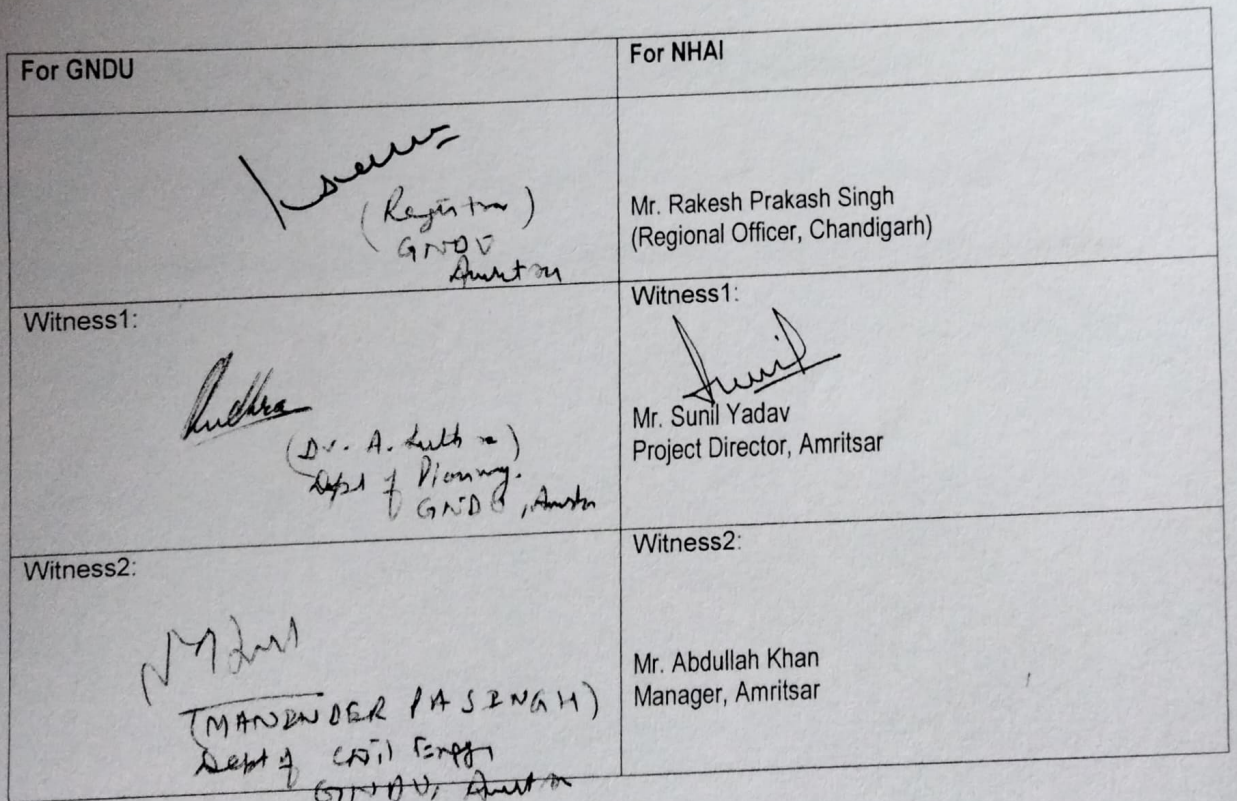 For GNDU
For NHAI
(Registrar)
GNDU
Amritsar
Mr. Rakesh Prakash Singh
(Regional Officer, Chandigarh)
Witness1:
(Dr. A. Luthra)
Dept of Planning.
GNDU, Amritsar
Witness1:
Sunil
Mr. Sunil Yadav
Project Director, Amritsar
Witness2:
(MANINDER SINGH)
Dept of Civil Engg
GNDU, Amritsar
Witness2:
Mr. Abdullah Khan
Manager, Amritsar